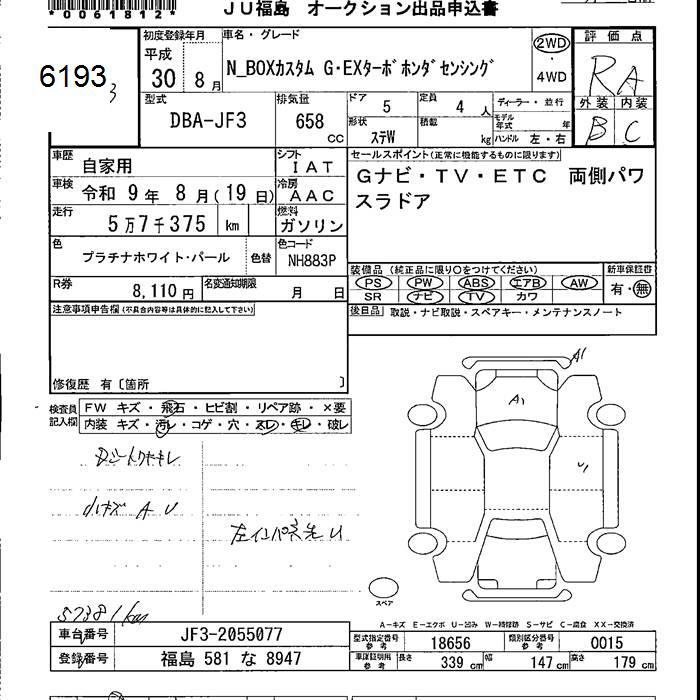 *0061812*
JU福島 オークション出品申込書
6193
初度登録年月
平成
30 8月
車名・グレード
N_BOXカスタム G・EXターボホンダセンシング
2WD
4WD
評価点
RA
外装 内装
B C
型式
DBA-JF3
排気量
658
CC
ドア 5
定員 4人
形状 ステW
積載 kg
ディーラー・並行
モデル年式 年
ハンドル 左・右
車歴 自家用
シフト IAT
車検 令和 9年 8月(19日)
冷房 AAC
走行 5万7千375 km
燃料 ガソリン
色 プラチナホワイト・パール
色替
色コード NH883P
R券 8,110円
名変通知期限 月 日
セールスポイント(正常に機能するものに限ります)
Gナビ・TV・ETC 両側パワ
スラドア
装備品(純正品に限り○をつけてください)
PS PW ABS エアB AW
SR ナビ TV カワ
新車保証書
有・無
後日品 取説・ナビ取説・スペアキー・メンテナンスノート
注意事項申告欄(不具合内容等は具体的に記入して下さい)
修復歴 有〔箇所 〕
検査員記入欄
FW キズ・飛石・ヒビ割・リペア跡・×要
内装 キズ・汚レ・コゲ・穴・スレ・キレ・破レ
小キズ A U
A1
A1
U
スペア
57381km
A-キズ E-エクボ U-凹み W-補修跡 S-サビ C-腐食 XX-交換済
車台番号 JF3-2055077
登録番号 福島 581 な 8947
型式指定番号 参考 18656
類別区分番号 参考 0015
車庫証明用 参考 長さ 339 cm 幅 147 cm 高さ 179 cm